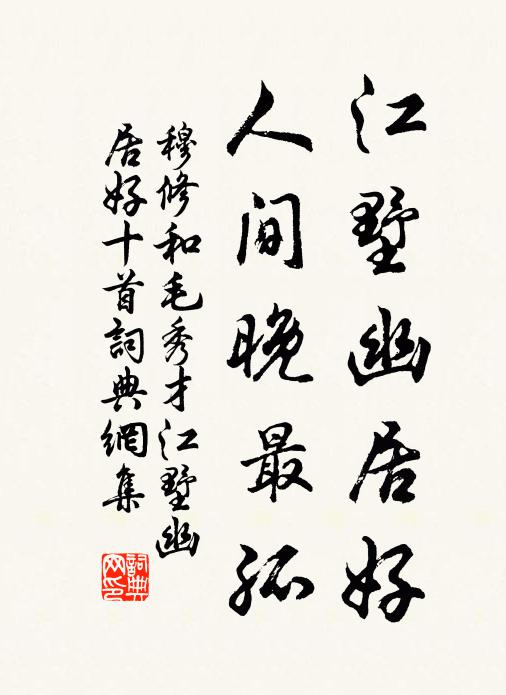 江墅幽居好
人間晚最孤
穆修和毛秀才江墅幽
居好十首詞典網集
詞典
网印